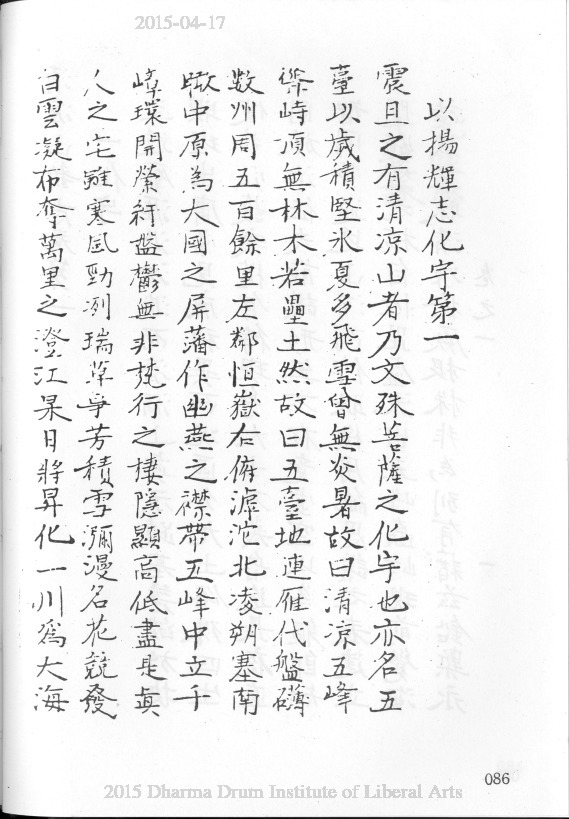 2015-04-17
以楊輝志化宇第一
震旦之有清凉山者乃文殊菩薩之化宇也亦名五
臺以歲積堅氷夏多飛雪曾無炎暑故曰清凉五峰
聳峙頂無林木若壘土然故曰五臺地連雁代盤礴
数州周五百餘里左鄰恒嶽右俯滹沱北凌朔塞南
瞰中原為大國之屏藩作幽燕之襟帶五峰中立千
嶂環開縈紆盤鬱無非梵行之棲隱顯高低盡是真
人之宅雖寒風勁冽瑞草爭芳積雪瀰漫名花競發
白雲凝布奪萬里之澄江杲日將昇化一川為大海
086
2015 Dharma Drum Institute of Liberal Arts